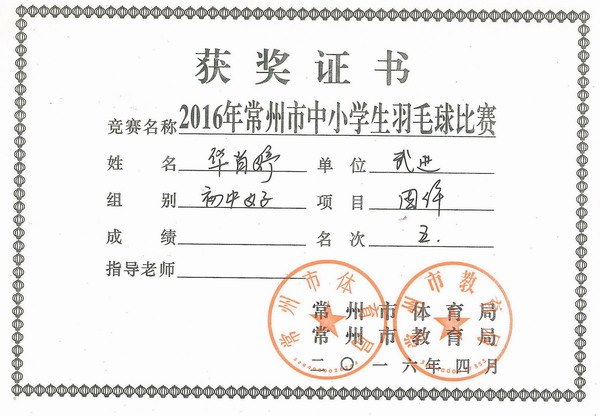 获奖证书
竞赛名称 2016年常州市中小学生羽毛球比赛
姓名 华肖婷 单位 武进
组别 初中女子 项目 团体
成绩 名次 五.
指导老师
常州市体育局
常州市教育局
二〇一六年四月
常州市体育局
常州市教育局